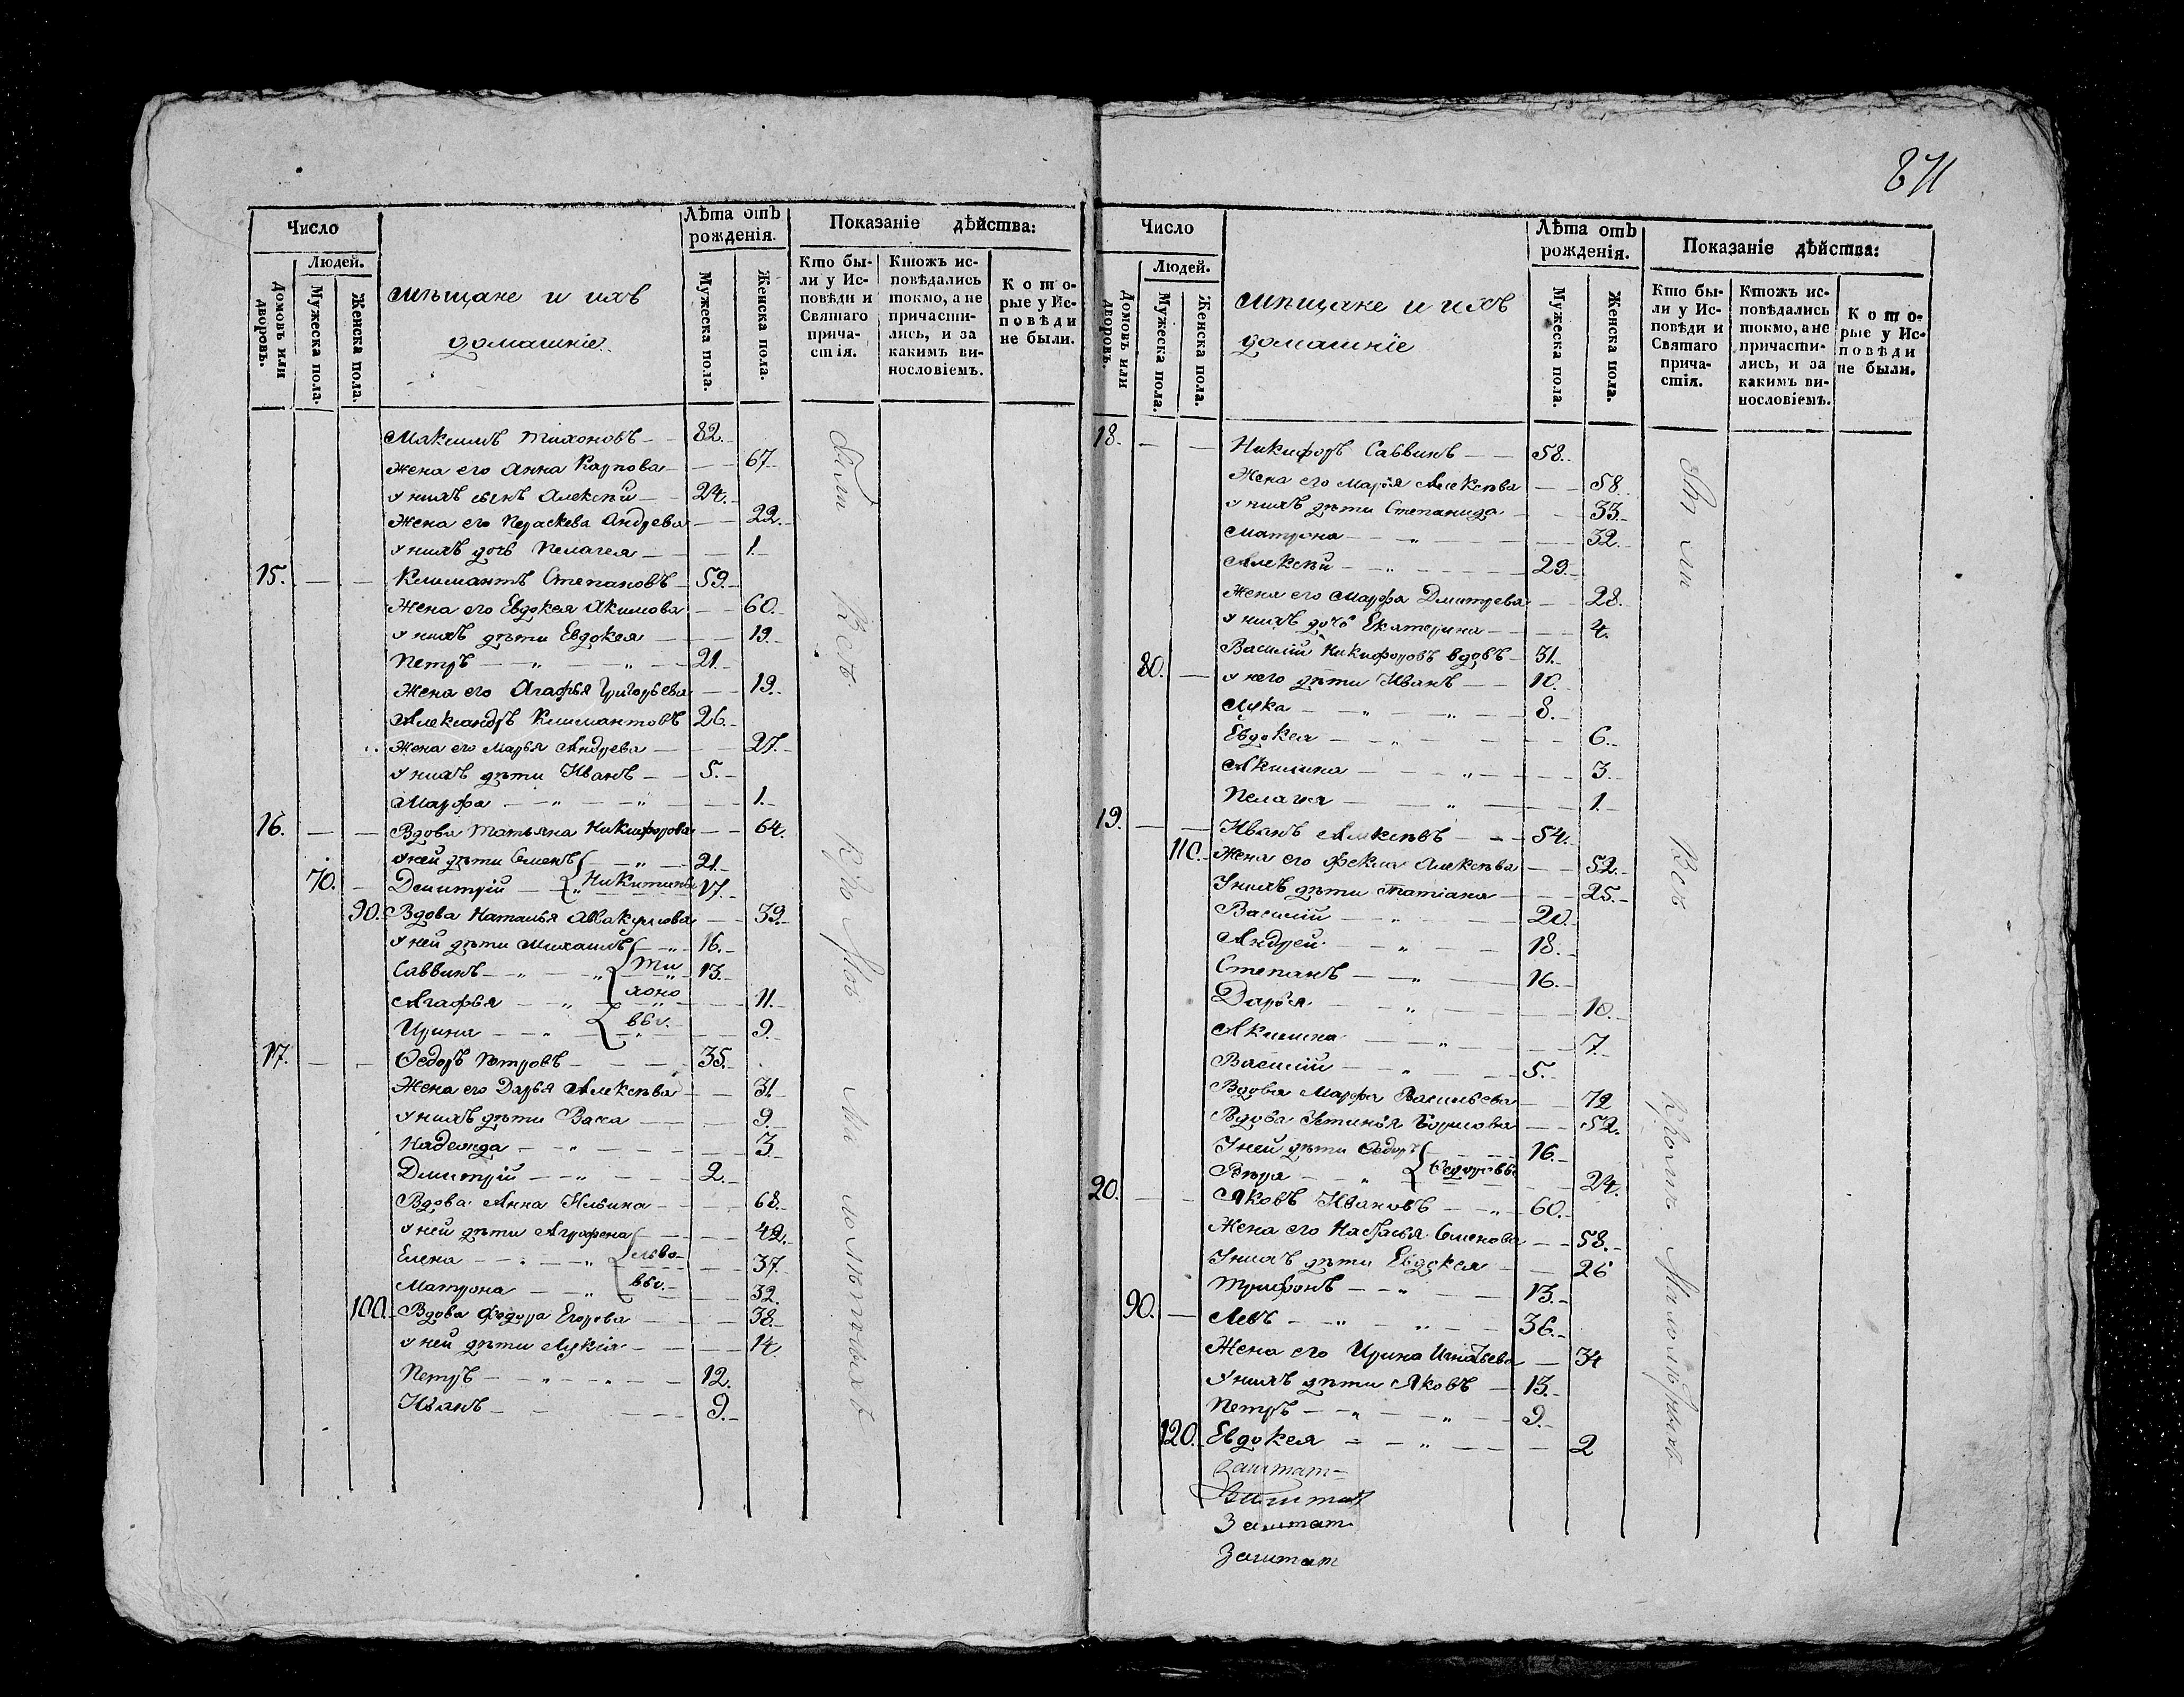 Число
Людей.
Домовъ или дворовъ.
Мужеска пола.
Женска пола.
мѣщане и ихъ
домашніе
Лѣта отъ рожденія.
Мужеска пола.
Женска пола.
Показаніе дѣйства:
Кто были у Исповѣди и Святаго причастія.
Ктожъ исповѣдались токмо, а не причастились, и за какимъ винословіемъ.
Которые у Исповѣди не были.
Максимъ Тихоновъ — 82.
Жена его Анна Карпова — 67
У нихъ сынъ Алексѣй — 24.
Жена его Параскева Андрева — 22.
У нихъ дочь Пелагея — 1.
15. — — Климантъ Степановъ — 59.
Жена его Евдокея Акимова — 60.
У нихъ дѣти Евдокея — 19.
Петръ — „ — „ — 21.
Жена его Агафья Григорьева — 19.
Александръ Климантовъ 26.
Жена его Марья Андрева — 27.
У нихъ дѣти Иванъ — 5.
Марфа — „ — „ — 1.
16. — — Вдова Татьяна Никифорова — 64.
У ней дѣти Семенъ — „ — 21.
70. — Дмитрій — „ Никитины 17.
90. Вдова Наталья Аввакумова — 39.
У ней дѣти Михаилъ — „ 16.
Саввинъ — „ — „ Ти 13.
Агафья — „ хоно — 11.
Ирина — „ вы. — 9.
17. — — Ѳедоръ Петровъ — 35.
Жена его Дарья Алексѣва — 31
У нихъ дѣти Васса — 9.
Надежда — „ — 3
Дмитрій — „ — 2.
Вдова Анна Ильина — 68.
У ней дѣти Аграфена — 42.
Елена — „ — „ Льво — 37
Матрона — „ вы. — 32.
100. Вдова Ѳедора Егорова — 38.
У ней дѣти Лукія — 14
Петръ — „ — „ — 12.
Иванъ — 9.
871
Число
Людей.
Домовъ или дворовъ.
Мужеска пола.
Женска пола.
мѣщане и ихъ
домашніе
Лѣта отъ рожденія.
Мужеска пола.
Женска пола.
Показаніе дѣйства:
Кто были у Исповѣди и Святаго причастія.
Ктожъ исповѣдались токмо, а не причастились, и за какимъ винословіемъ.
Которые у Исповѣди не были.
18. — — Никифоръ Саввинъ — 58.
Жена его Марья Алексѣва — 58
У нихъ дѣти Степанида — 33.
Матрона — „ — 32.
Алексѣй — „ — 29.
Жена его Марфа Дмитрева — 28.
У нихъ дочь Екатерина — 4.
Василій Никифоровъ вдовъ — 31.
80. — У него дѣти Иванъ — 10.
Лука — „ — „ — 8.
Евдокея — „ — 6.
Акилина — „ — 3
Пелагея — „ — 1.
19. — — Иванъ Алексѣвъ — 54.
110. Жена его Фекла Алексѣва — 52.
У нихъ дѣти Татіана — 25.
Василій — „ — 20.
Андрей — „ — 18.
Степанъ — „ — 16.
Дарья — „ — 10.
Акилина — „ — 7.
Василій — „ — 5.
Вдова Марфа Васильева — 72
Вдова Устинья Борисова — 52.
У ней дѣти Ѳедоръ — 16.
Вѣра — „ Ѳедоровы 24.
20. — — Яковъ Ивановъ — „ 60.
Жена его Настасья Семенова — 58.
У нихъ дѣти Евдокея — 26
Трифонъ — „ — 13.
90. — Левъ — „ — „ — 36.
Жена его Ирина Игнатьева — 34
У нихъ дѣти Яковъ — 13.
Петръ — „ — „ — 9.
120. Евдокея — „ — 2
Заштат
Заштат
Заштат
Заштат